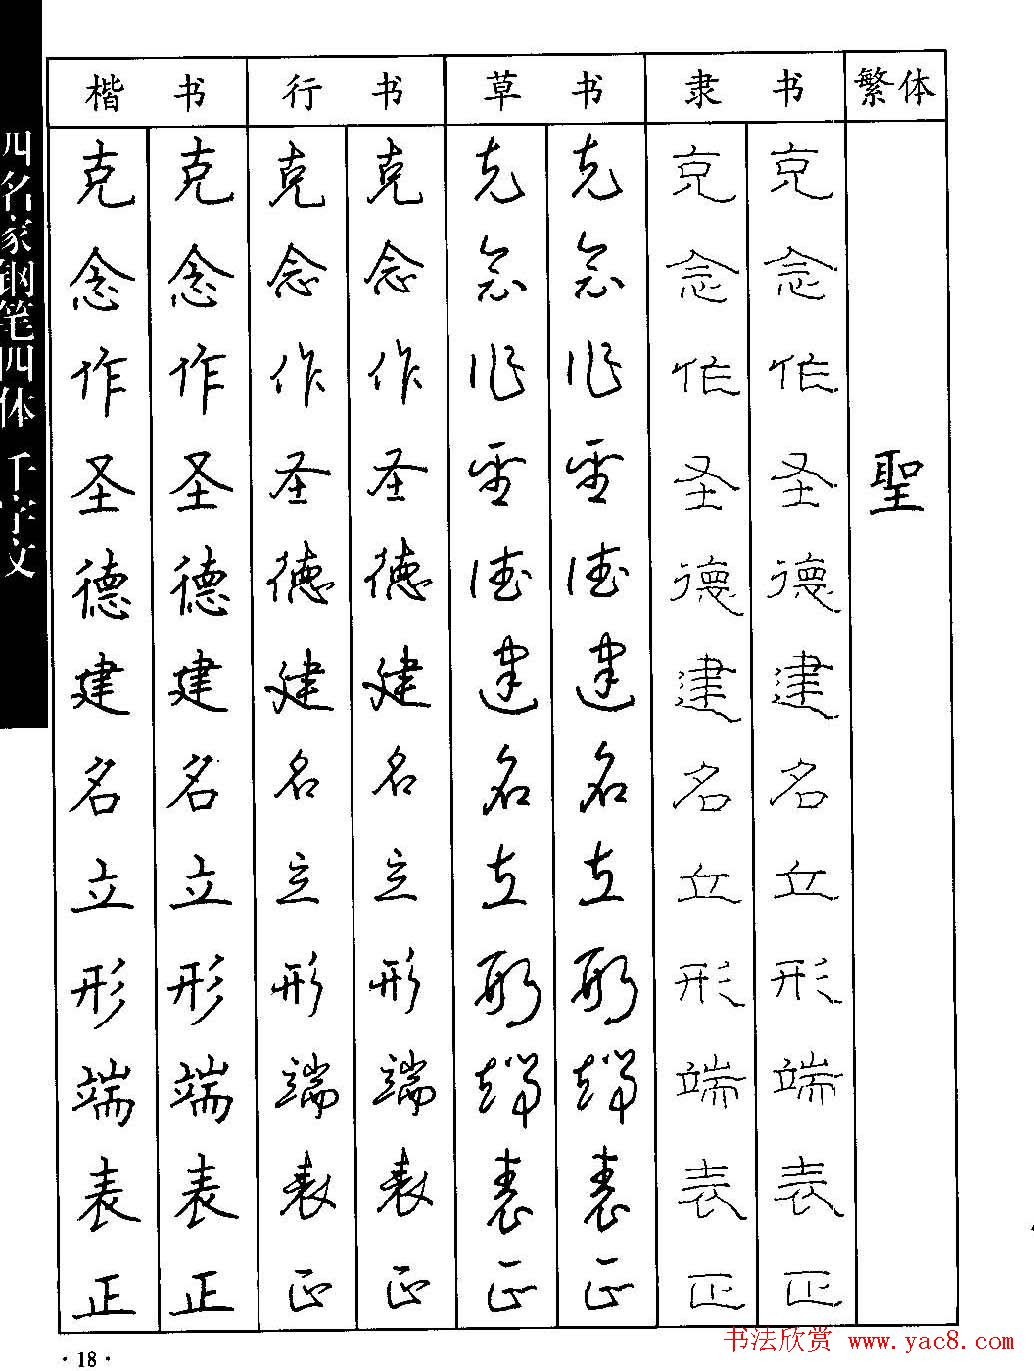 四名家钢笔四体 千字文
楷书 行书 草书 隶书 繁体
克 克 克 克 克 克 克 克
念 念 念 念 念 念 念 念
作 作 作 作 作 作 作 作
圣 圣 圣 圣 圣 圣 圣 圣 聖
德 德 德 德 德 德 德 德
建 建 建 建 建 建 建 建
名 名 名 名 名 名 名 名
立 立 立 立 立 立 立 立
形 形 形 形 形 形 形 形
端 端 端 端 端 端 端 端
表 表 表 表 表 表 表 表
正 正 正 正 正 正 正 正
·18·
书法欣赏 www.yac8.com